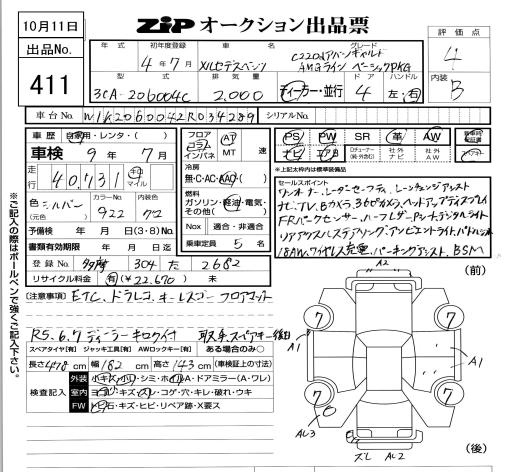 10月11日
出品No.
411
ZIP オークション出品票
評価点
4
内装
B
年式 初年度登録 車名 グレード
4年7月 メルセデスベンツ C220dアバンギャルド
AMGライン ベーシックPKG
型式 排気量 ドア ハンドル
3CA-206004C 2,000 ディーラー・並行 4 左・右
車台No. W1K2060042R034289 シリアルNo.
車歴 自家用・レンタ( )
車検 9年7月
走行 40,731 キロ マイル
色 シルバー (元色) カラーNo. 922 内装色
予備検 年 月 日(3・8)No.
書類有効期限 年 月 日迄
登録No. 多摩 304 た 2682
リサイクル料金 有(¥22,670) 未
フロア コラム インパネ AT MT 速
冷房 無・C・AC・AAC
燃料 ガソリン・軽油・電気・その他( )
Nox 適合・非適合
乗車定員 5名
PS PW SR 革 AW
ナビ エアB 社外ナビ 社外AW
*上記太枠内は標準装備品
セールスポイント
ワンオーナー レーダーセーフティ、レーンチェンジアシスト
ナビ、TV、Bカメラ、360°カメラ、ヘッドアップディスプレイ
FRパークセンサー、ハーフレザー、デジタルライト
リアアクスルステアリング、アンビエントライト、パドルシフト
18AW、ワイヤレス充電、パーキングアシスト、BSM
※ご記入の際はボールペンで強くご記入下さい。
[注意事項] ETC、ドラレコ、キーレスゴー フロアマット
R5.6.7 ディーラーキロクイチ 取説、スペアキー後日
スペアタイヤ[有] ジャッキ工具[有] AWロックキー[有] ある場合のみ○
長さ478cm 幅182cm 高さ143cm (車検証上の寸法)
検査記入
外装 小キズ・小凹・シミ・ホイルA・ドアミラー(A・ワレ)
室内 ヨゴレ・キズ・スレ・コゲ・穴・キレ・破れ・ウキ
FW 飛石・キズ・ヒビ・リペア跡・X要ス
(前)
A2
7
7
A1
A1
7
7
AL3
スレ AL2
(後)